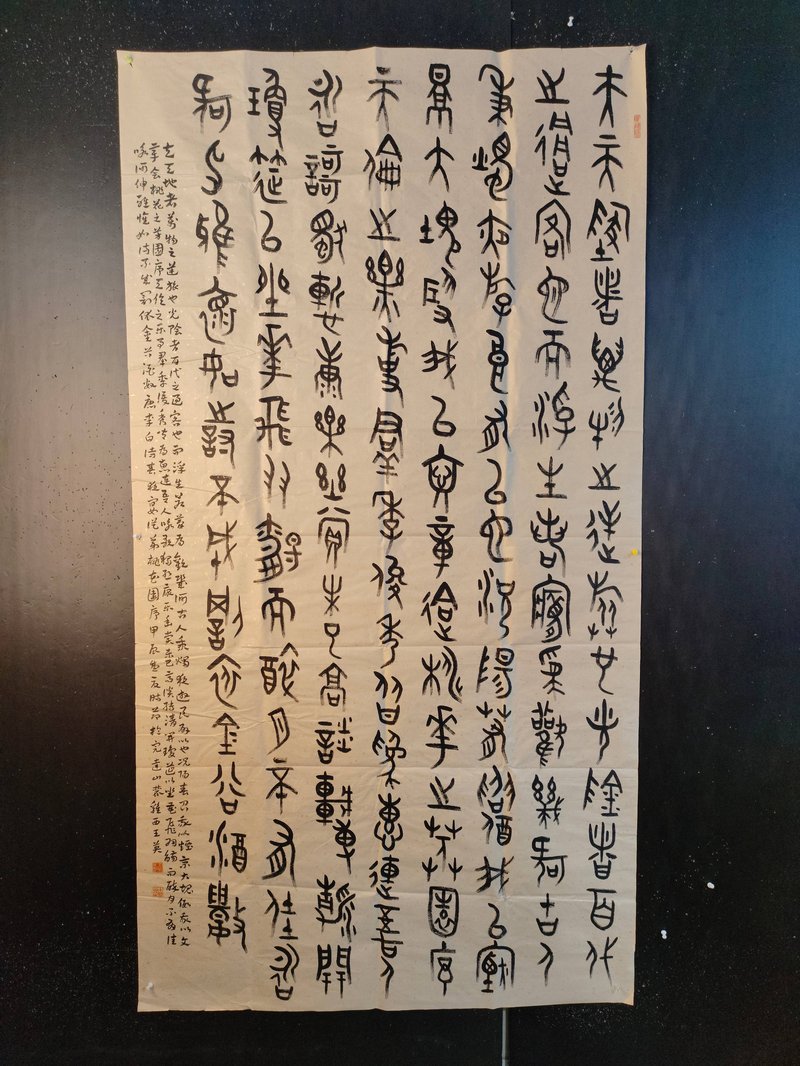 夫天地者萬物之逆旅也光陰者百代
之過客也而浮生若夢為歡幾何古人
秉燭夜遊良有以也況陽春召我以煙
景大塊假我以文章會桃花之芳園序
天倫之樂事群季俊秀皆為惠連吾人
詠歌獨慚康樂幽賞未已高談轉清開
瓊筵以坐花飛羽觴而醉月不有佳詠
何伸雅懷如詩不成罰依金谷酒數
夫天地者萬物之逆旅也光陰者百代之過客也而浮生若夢為歡幾何古人秉燭夜遊良有以也況陽春召我以煙景大塊假我以文
章會桃花之芳園序天倫之樂事羣季俊秀皆為惠連吾人詠歌獨慚康樂幽賞未已高談轉清開瓊筵以坐花飛羽觴而醉月不有佳
詠何伸雅懷如詩不成罰依金谷酒數唐李白詩春夜宴從弟桃花園序甲辰年夏時節於完達山王英